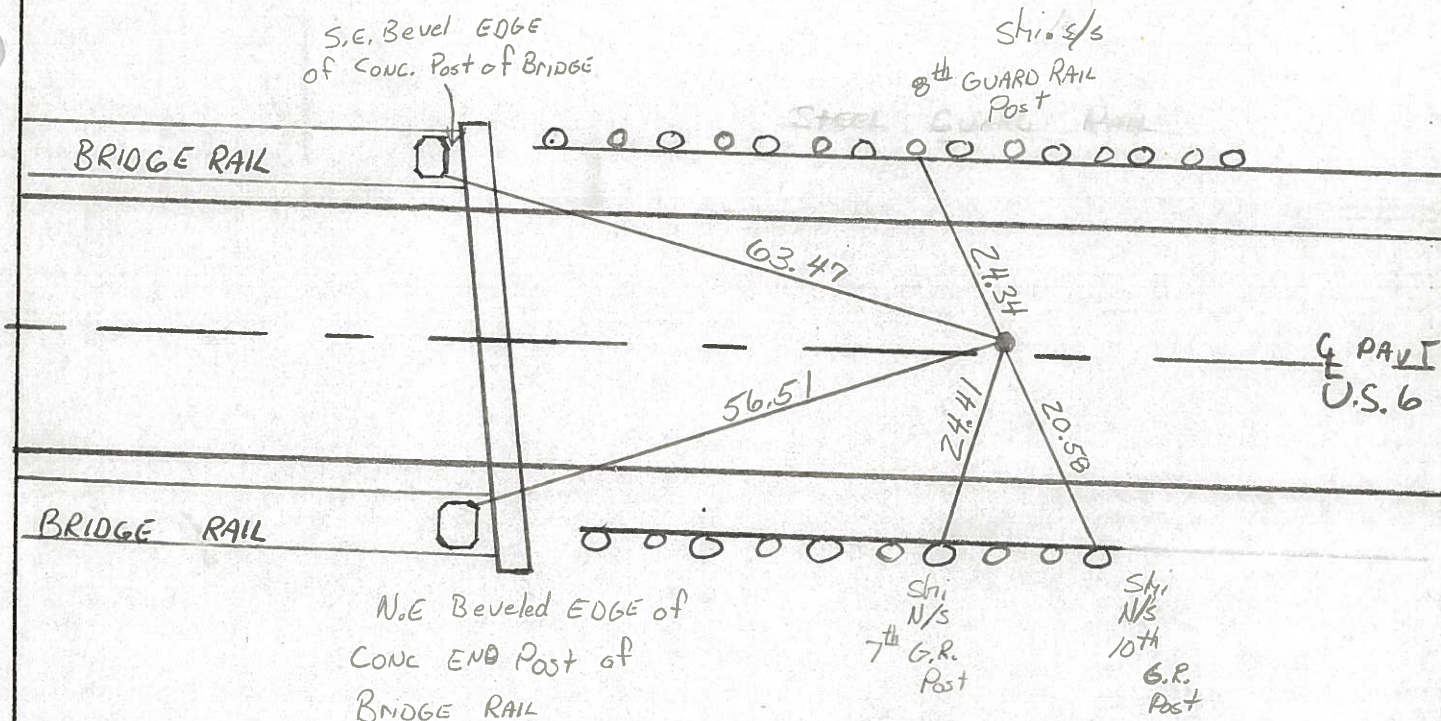 S.E. Bevel EDGE
of CONC. Post of BRIDGE
Shi. S/S
8th GUARD RAIL
Post
STEEL GUARD RAIL
BRIDGE RAIL
63.47
24.34
℄ PAVT
U.S. 6
56.51
24.41
20.58
BRIDGE RAIL
N.E Beveled EDGE of
CONC END Post of
BRIDGE RAIL
Shi
N/S
7th G.R.
Post
Shi
N/S
10th
G.R.
Post